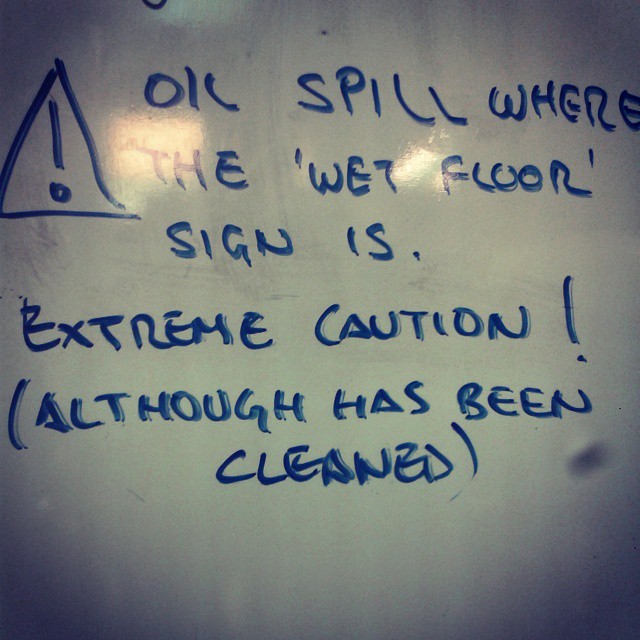 ! OIL SPILL WHERE
THE 'WET FLOOR'
SIGN IS.
EXTREME CAUTION!
(ALTHOUGH HAS BEEN
CLEANED)